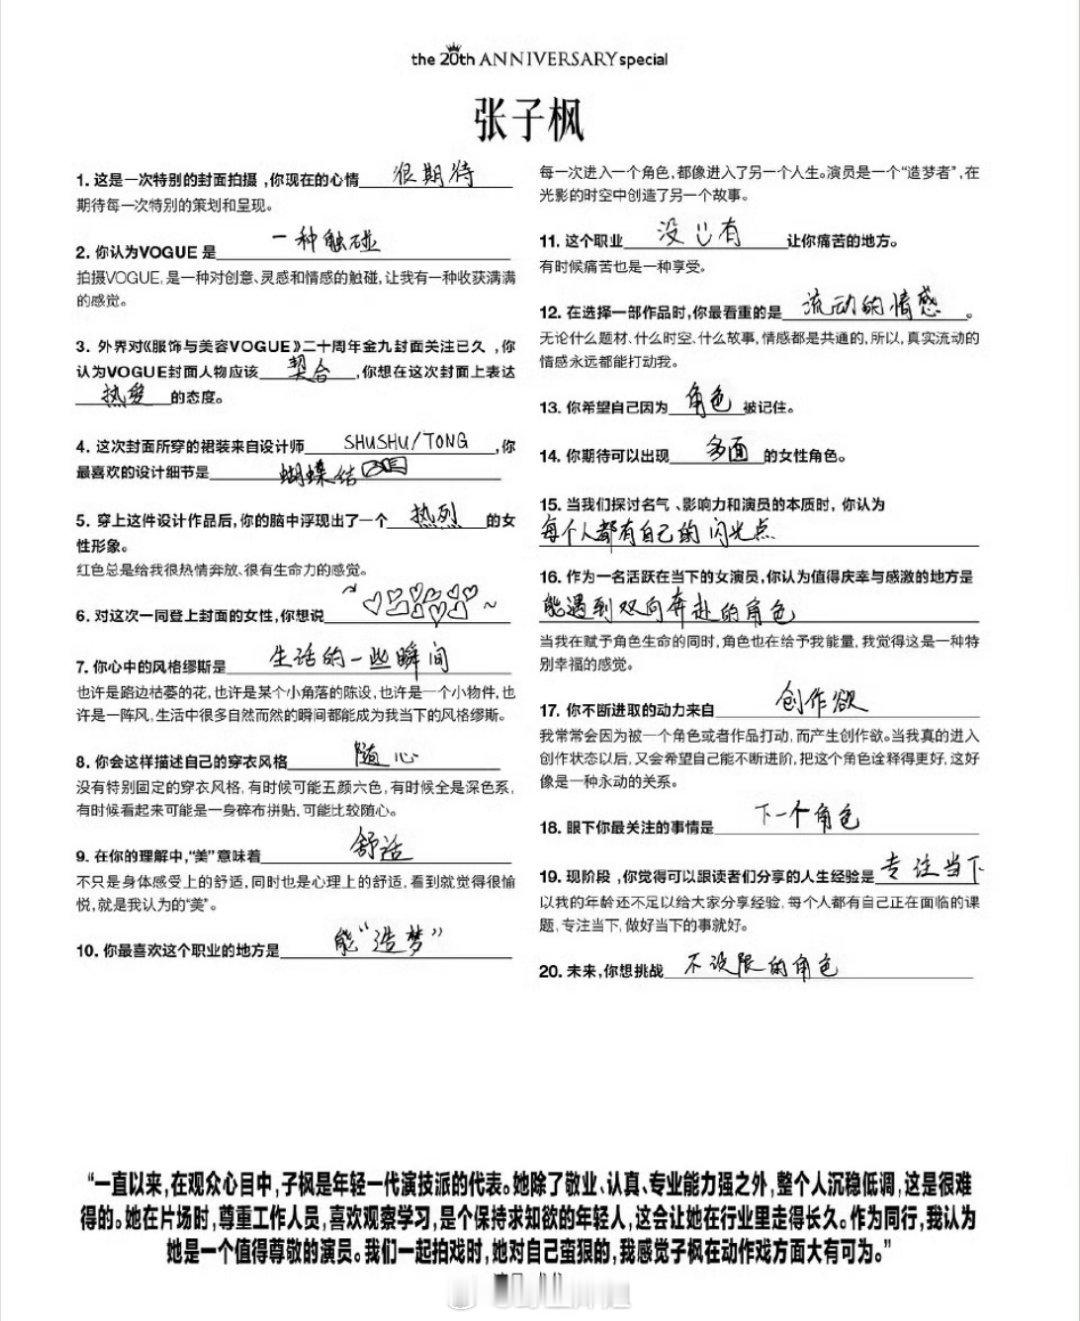 the 20th ANNIVERSARY special
张子枫
1. 这是一次特别的封面拍摄,你现在的心情 很期待
期待每一次特别的策划和呈现。
2. 你认为VOGUE 是 一种触碰
拍摄VOGUE,是一种对创意、灵感和情感的触碰,让我有一种收获满满
的感觉。
3. 外界对《服饰与美容VOGUE》二十周年金九封面关注已久,你
认为VOGUE封面人物应该 契合 ,你想在这次封面上表达
热爱 的态度。
4. 这次封面所穿的裙装来自设计师 SHUSHU/TONG ,你
最喜欢的设计细节是 蝴蝶结
5. 穿上这件设计作品后,你的脑中浮现出了一个 热烈 的女
性形象。
红色总是给我很热情奔放、很有生命力的感觉。
6. 对这次一同登上封面的女性,你想说 ~♡♡♡♡♡♡♡~
7. 你心中的风格缪斯是 生活的一些瞬间
也许是路边枯萎的花,也许是某个小角落的陈设,也许是一个小物件,也
许是一阵风,生活中很多自然而然的瞬间都能成为我当下的风格缪斯。
8. 你会这样描述自己的穿衣风格 随心
没有特别固定的穿衣风格,有时候可能五颜六色,有时候全是深色系,
有时候看起来可能是一身碎布拼贴,可能比较随心。
9. 在你的理解中,“美”意味着 舒适
不只是身体感受上的舒适,同时也是心理上的舒适,看到就觉得很愉
悦,就是我认为的“美”。
10. 你最喜欢这个职业的地方是 能“造梦”
每一次进入一个角色,都像进入了另一个人生。演员是一个“造梦者”,在
光影的时空中创造了另一个故事。
11. 这个职业 没有 让你痛苦的地方。
有时候痛苦也是一种享受。
12. 在选择一部作品时,你最看重的是 流动的情感 。
无论什么题材、什么时空、什么故事,情感都是共通的,所以,真实流动的
情感永远都能打动我。
13. 你希望自己因为 角色 被记住。
14. 你期待可以出现 多面 的女性角色。
15. 当我们探讨名气、影响力和演员的本质时,你认为
每个人都有自己的闪光点
16. 作为一名活跃在当下的女演员,你认为值得庆幸与感激的地方是
能遇到双向奔赴的角色
当我在赋予角色生命的同时,角色也在给予我能量,我觉得这是一种特
别幸福的感觉。
17. 你不断进取的动力来自 创作欲
我常常会因为被一个角色或者作品打动,而产生创作欲。当我真的进入
创作状态以后,又会希望自己能不断进阶,把这个角色诠释得更好,这好
像是一种永动的关系。
18. 眼下你最关注的事情是 下一个角色
19. 现阶段,你觉得可以跟读者们分享的人生经验是 专注当下
以我的年龄还不足以给大家分享经验,每个人都有自己正在面临的课
题,专注当下,做好当下的事就好。
20. 未来,你想挑战 不设限的角色
“一直以来,在观众心目中,子枫是年轻一代演技派的代表。她除了敬业、认真、专业能力强之外,整个人沉稳低调,这是很难
得的。她在片场时,尊重工作人员,喜欢观察学习,是个保持求知欲的年轻人,这会让她在行业里走得长久。作为同行,我认为
她是一个值得尊敬的演员。我们一起拍戏时,她对自己蛮狠的,我感觉子枫在动作戏方面大有可为。”